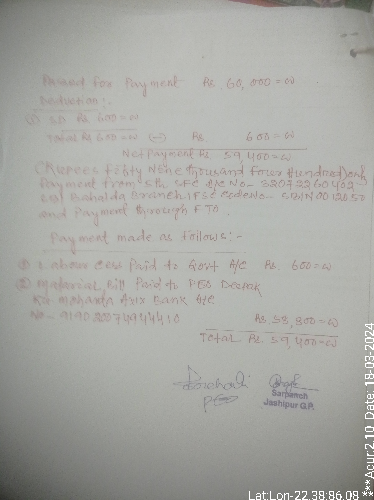 Passed for Payment Rs. 60,000=00
Deduction:-
(1) SD Rs 600=00
Total Rs 600=00 (-) Rs 600=00
Net Payment Rs 59,400=00
(Rupees fifty Nine thousand four Hundred) only
Payment from 5th SFC A/C No- 32072260402
Bahalda Branch IFSC Code No-
and Payment through FTO.
Payment made as follows:-
(1) Labour Cess Paid to Govt A/C Rs. 600=00
(2) Material Bill Paid to PEO Deepak
Kr Mohanta Axis Bank A/C
No-
Rs. 58,800=00
Total Rs. 59,400=00
PEO
Sarpanch
Jashipur G.P.
Lat:Lon-22.38:86.08
***Acur:2.10 Date: 18-03-2024